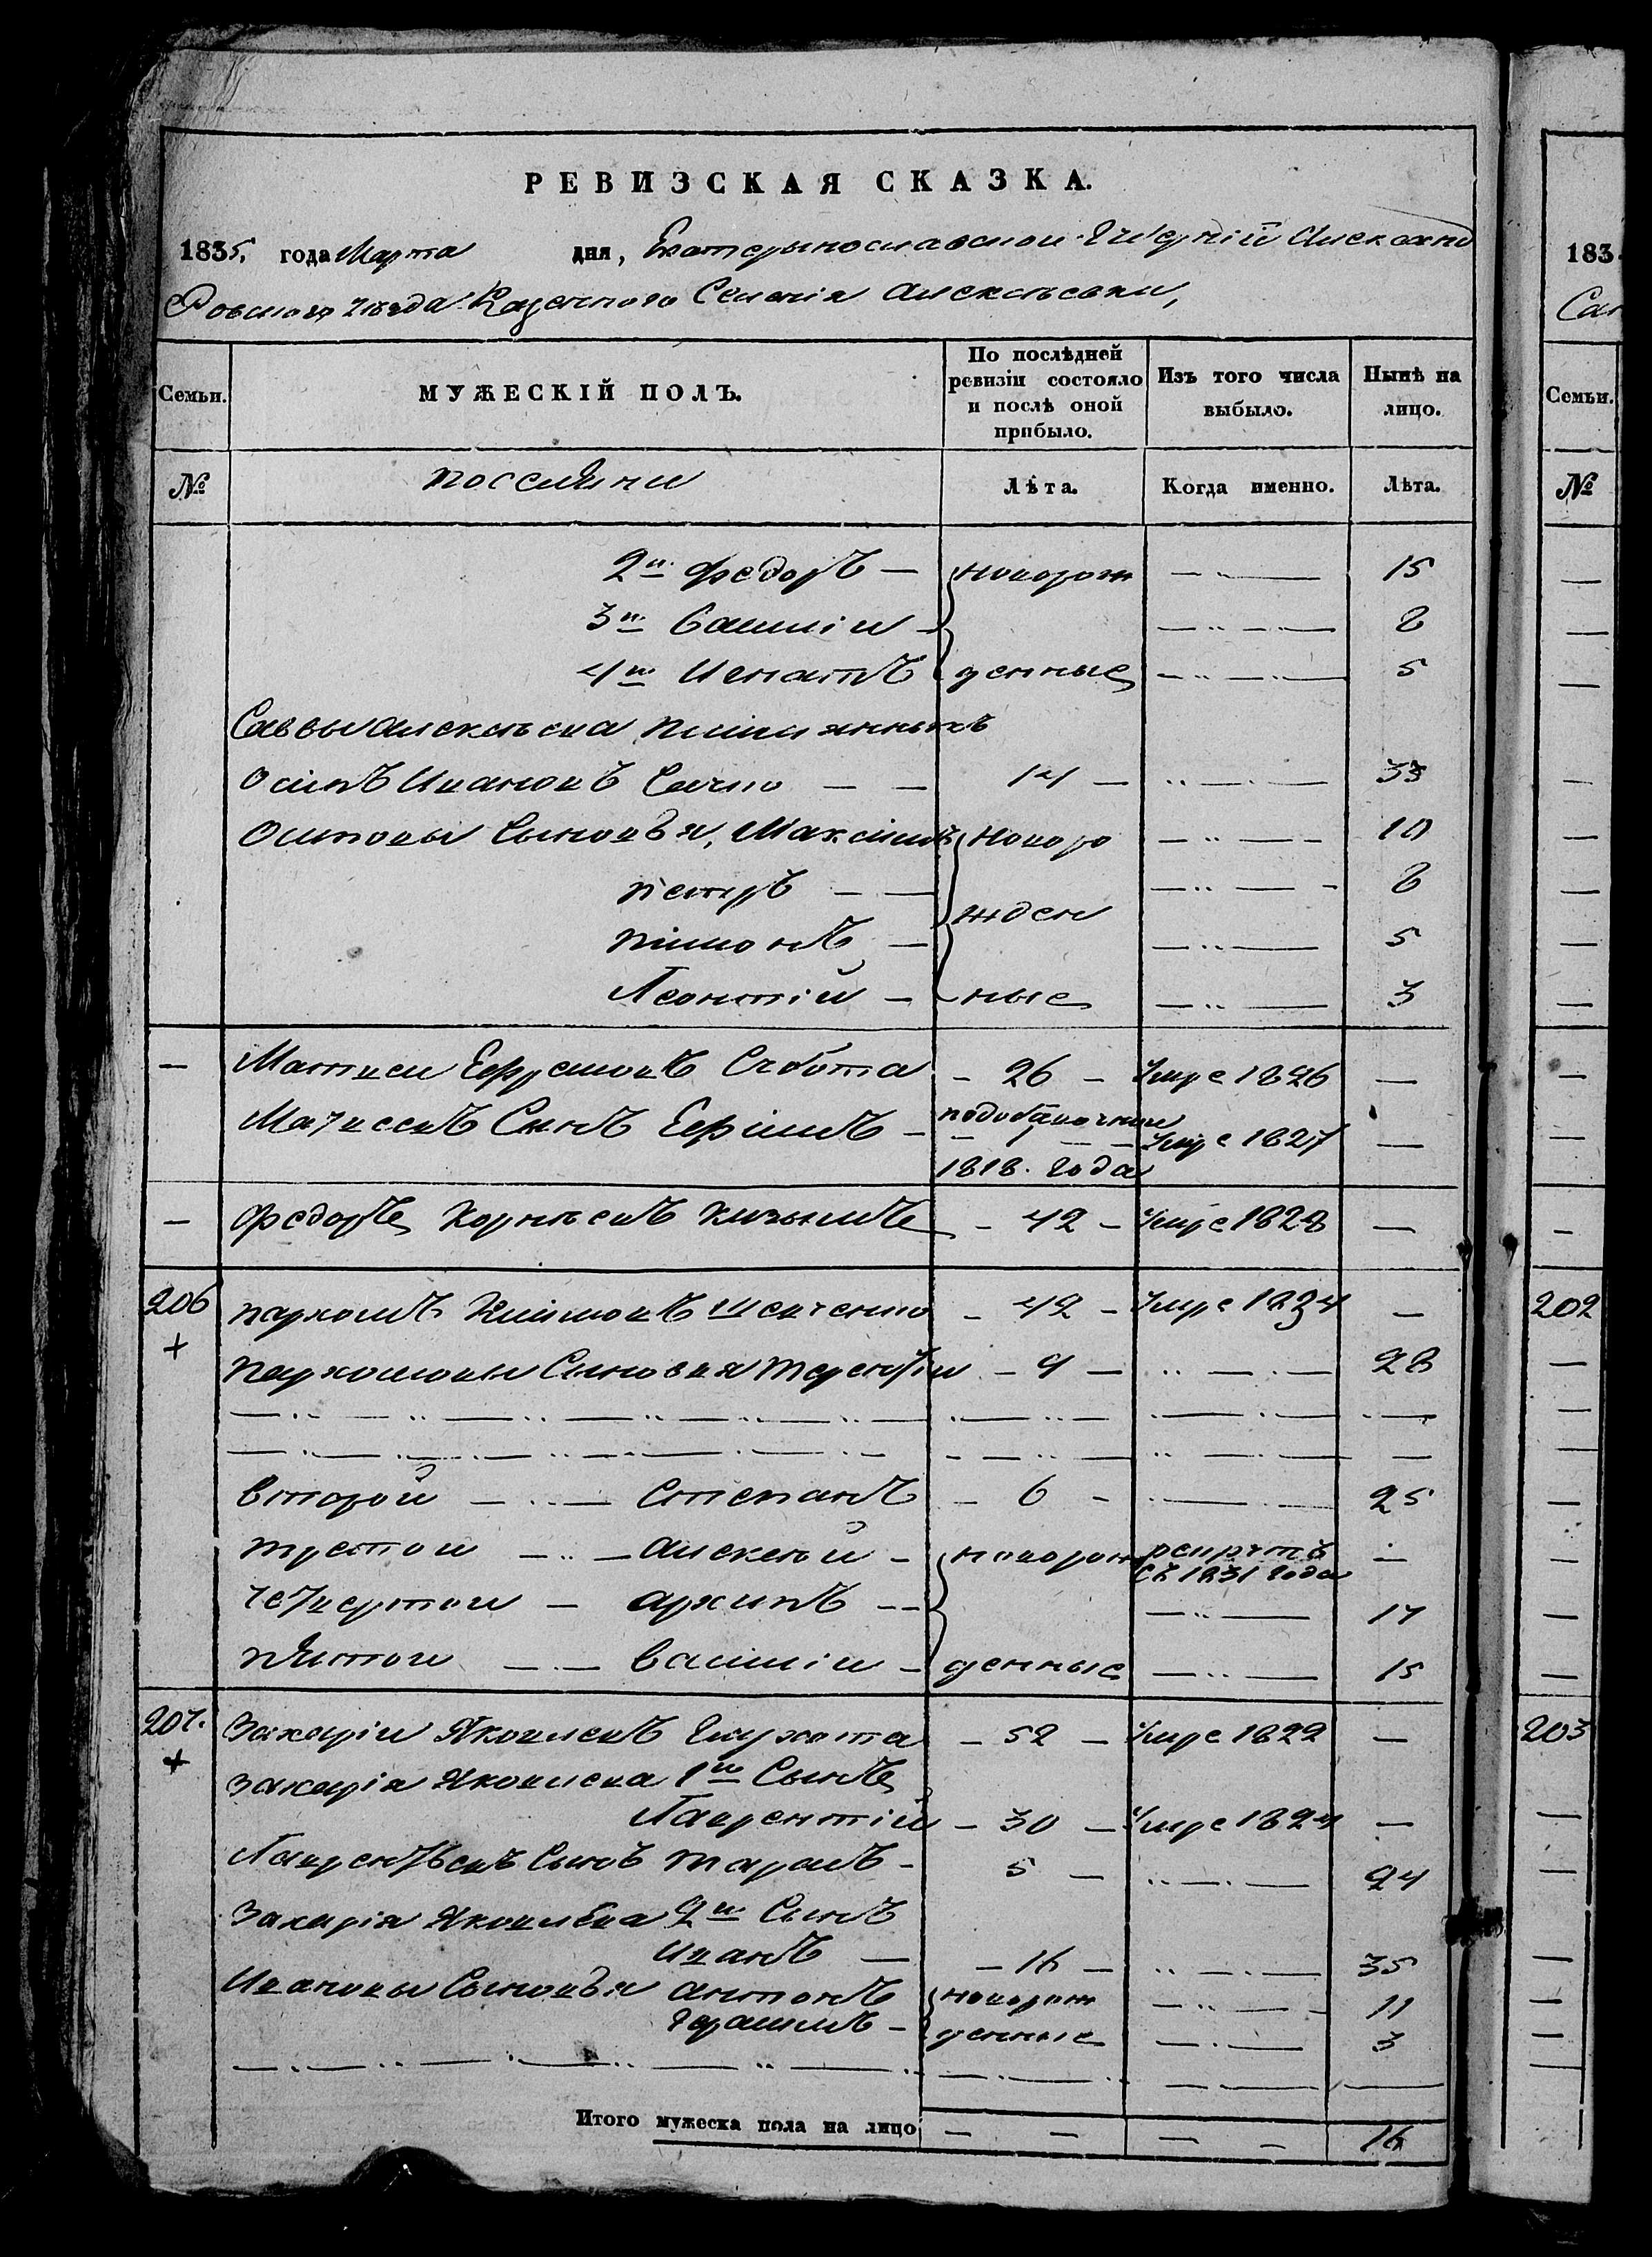 РЕВИЗСКАЯ СКАЗКА.
1835, года Марта дня, Екатериносласкои Губерній Александ
Ровского уѣзда Казенного Селенія Алексѣевки,
183
Семьи.
МУЖЕСКІЙ ПОЛЪ.
По послѣдней ревизіи состояло и послѣ оной прибыло.
Изъ того числа выбыло.
Нынѣ на лицо.
Семьи.
№
Лѣта.
Когда именно.
Лѣта.
№
2й Федоръ — новорож — 15
3й Василіи — — 8
4й Игнатъ — денные — 5
Саввы Алексѣева
Осипъ Ивановъ — 14 — 33
Осиповы Сыновья, Максимъ новоро — 10
Петръ — — 8
жден
— 5
Леонтій — ные — 3
— Матвеи Ефремовъ Субота — 26 — Умре 1826 —
Матвеевъ Сынъ Ефимъ — 1 — Умре 1827 —
1818. года
— Федоръ Корнѣевъ — 42 — Умре 1828 —
206 Пархомъ Климовъ Шевченко — 42 — Умре 1834 — 202
+
Пархомовы Сыновья Терентіи — 9 — 28
Второй — Степанъ — 6 — 25
Третои — Алексѣй — новорож рекрутъ —
съ 1831 года
Четвертои — Архипъ — — 17
Пятои — Василіи — денные — 15
207. Захаріи Яковлевъ — 52 — Умре 1822 — 203
+
Захарія Яковлева 1й Сынъ
Лаврентій — 30 — Умре 1824 —
Лаврентьевъ Сынъ Тарасъ — 5 — 24
Захарія Яковлева 2й Сынъ
Иванъ — 16 — 35
Ивановы Сыновья Антонъ новорож — 11
Герасимъ — денные — 3
Итого мужеска пола на лицо — — — — 16